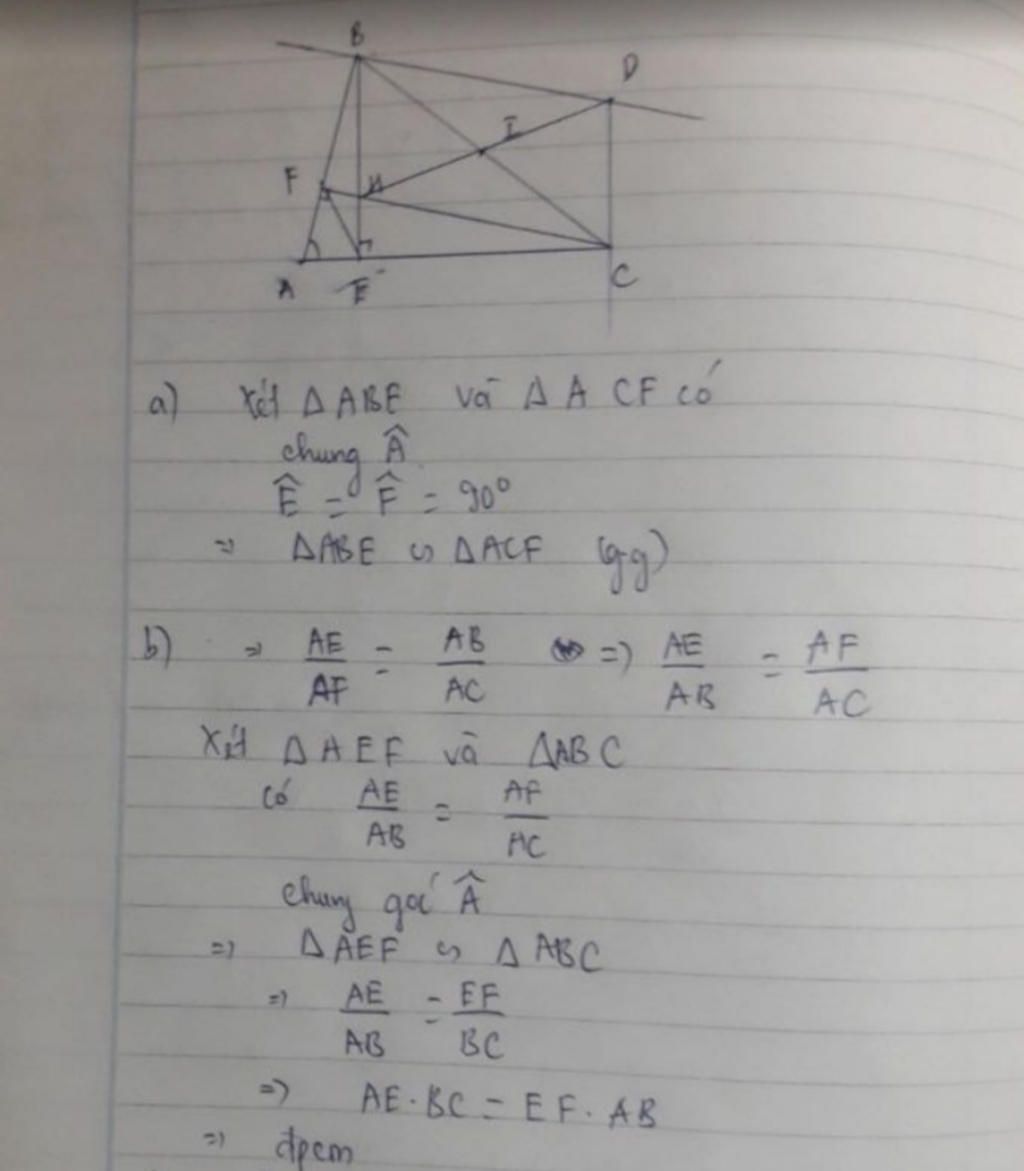 B
D
I
F
H
A
E
C
a) Xét Δ ABE và Δ A CF có
chung Â
Ê = F̂ = 90°
=> ΔABE ∽ ΔACF (g.g)
b) => AE/AF = AB/AC => AE/AB = AF/AC
Xét Δ AEF và ΔABC
có AE/AB = AF/AC
chung góc Â
=> ΔAEF ∽ Δ ABC
=> AE/AB = EF/BC
=> AE.BC = EF.AB
=> đpcm